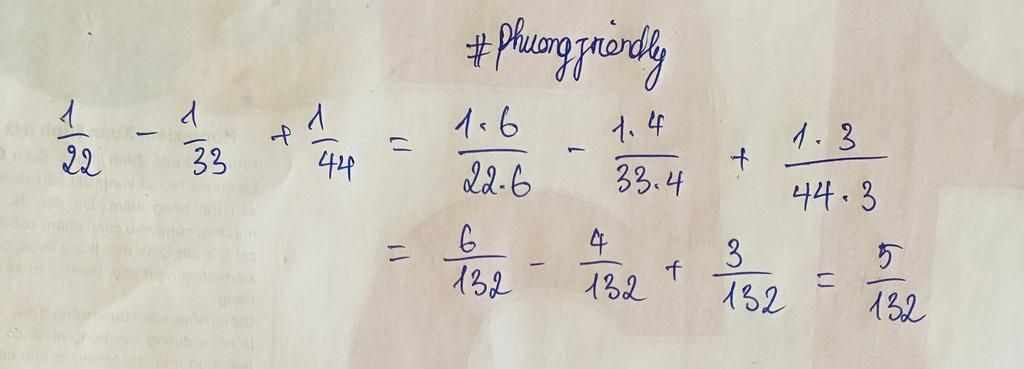 #Phuongfriendly
1/22 - 1/33 + 1/44 = 1.6/22.6 - 1.4/33.4 + 1.3/44.3
= 6/132 - 4/132 + 3/132 = 5/132